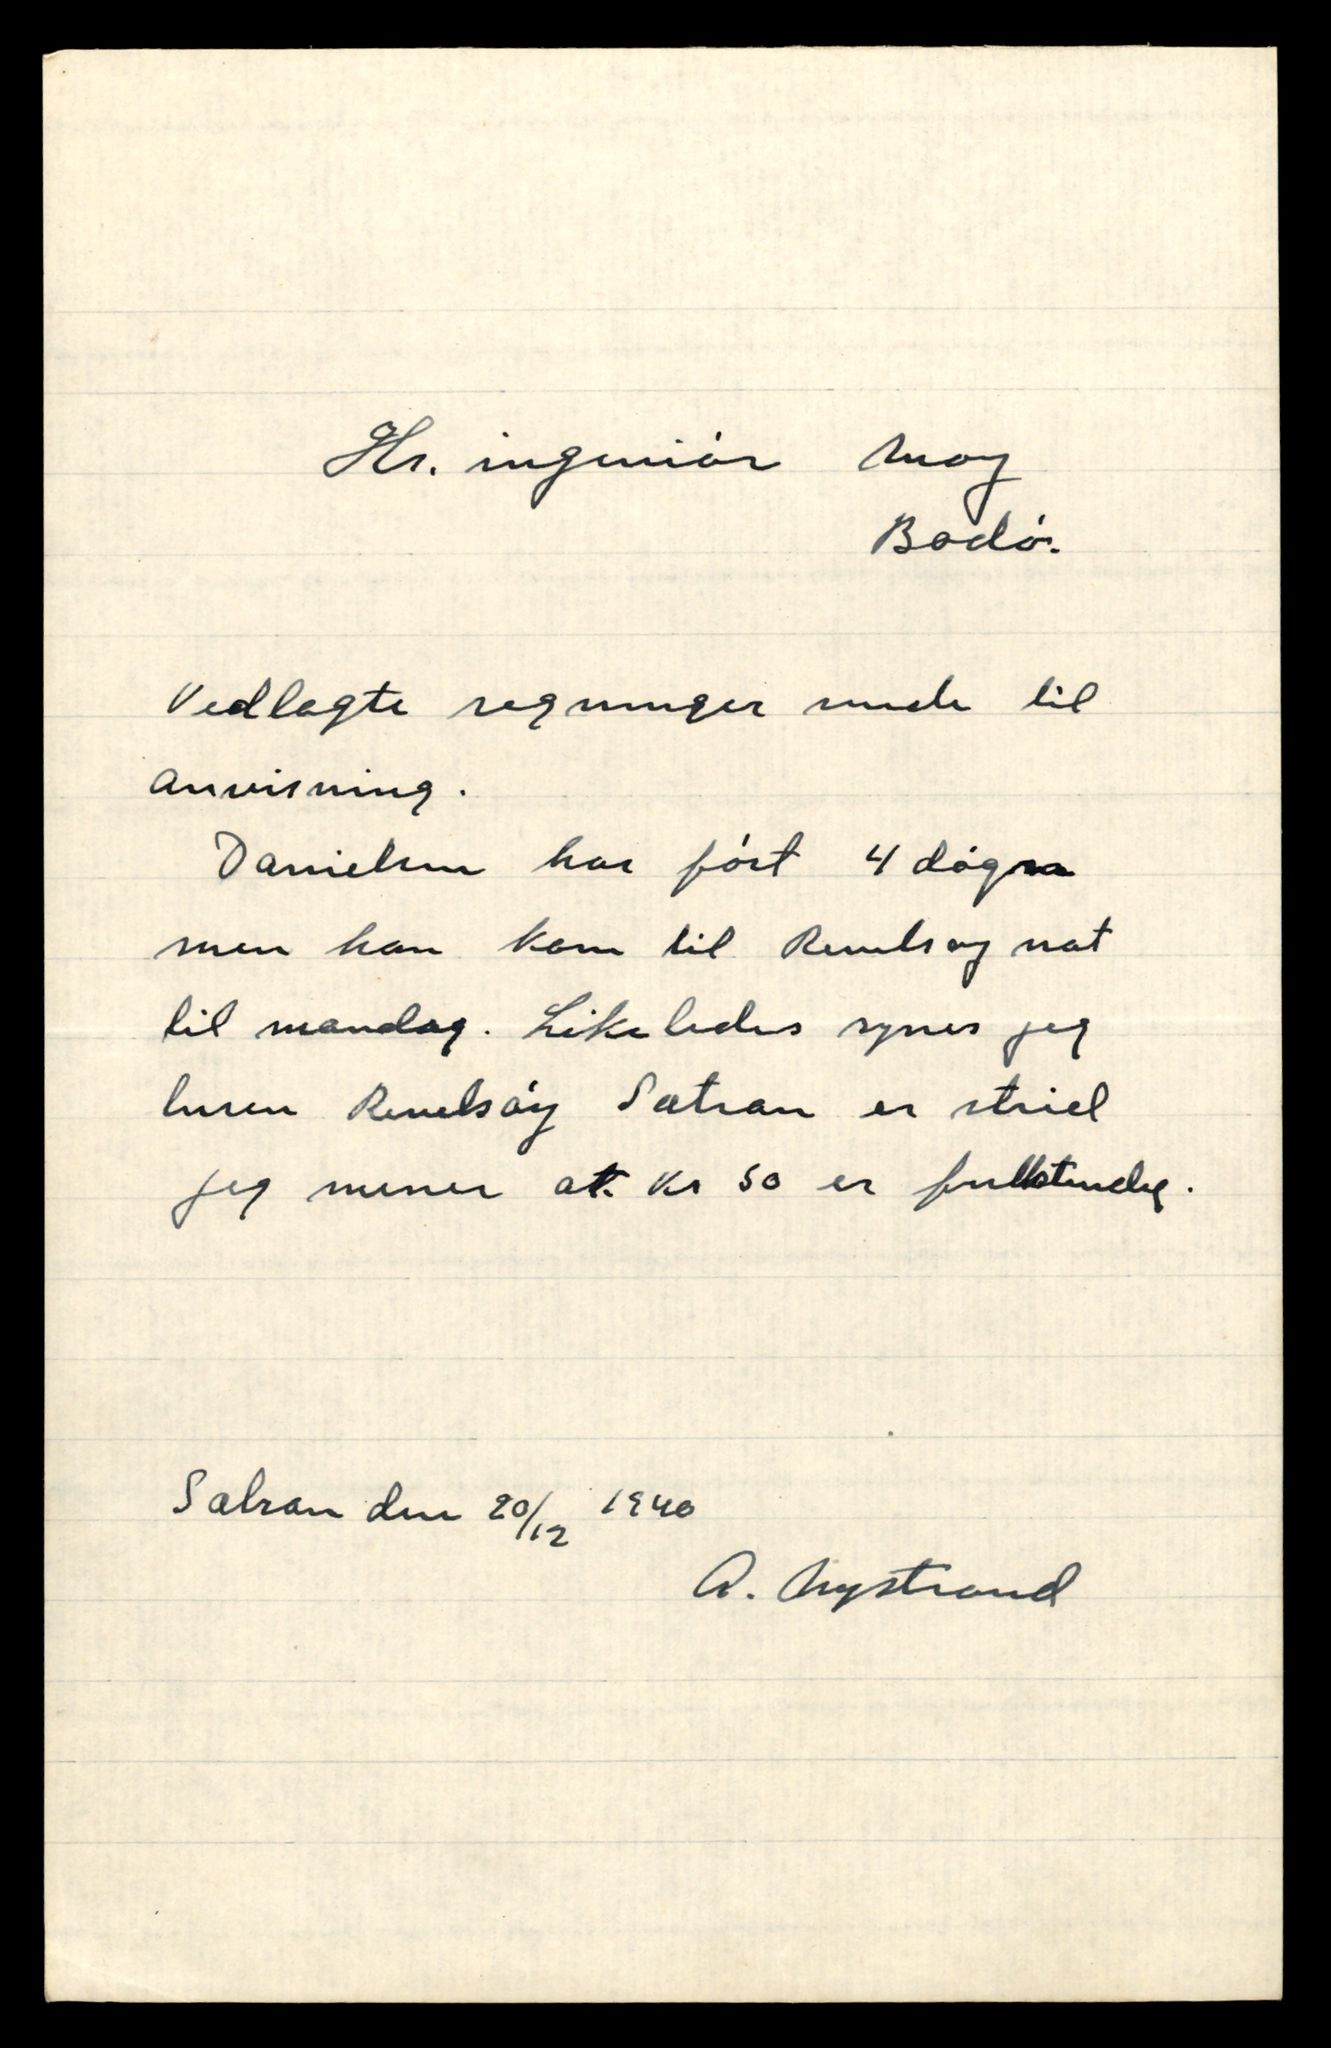 Hr. ingeniör Moy
Bodö.
Vedlagte regninger sende til
anvisning.
Danielsen har fört 4 dögn
men han kom til Renelsøy nat
til mandag. Likeledes synes jeg
turen Renelsöy Sætran er
jeg mener at. Kr 50 er fullstendig.
Sætran den 20/12 1940
A. Nystrand